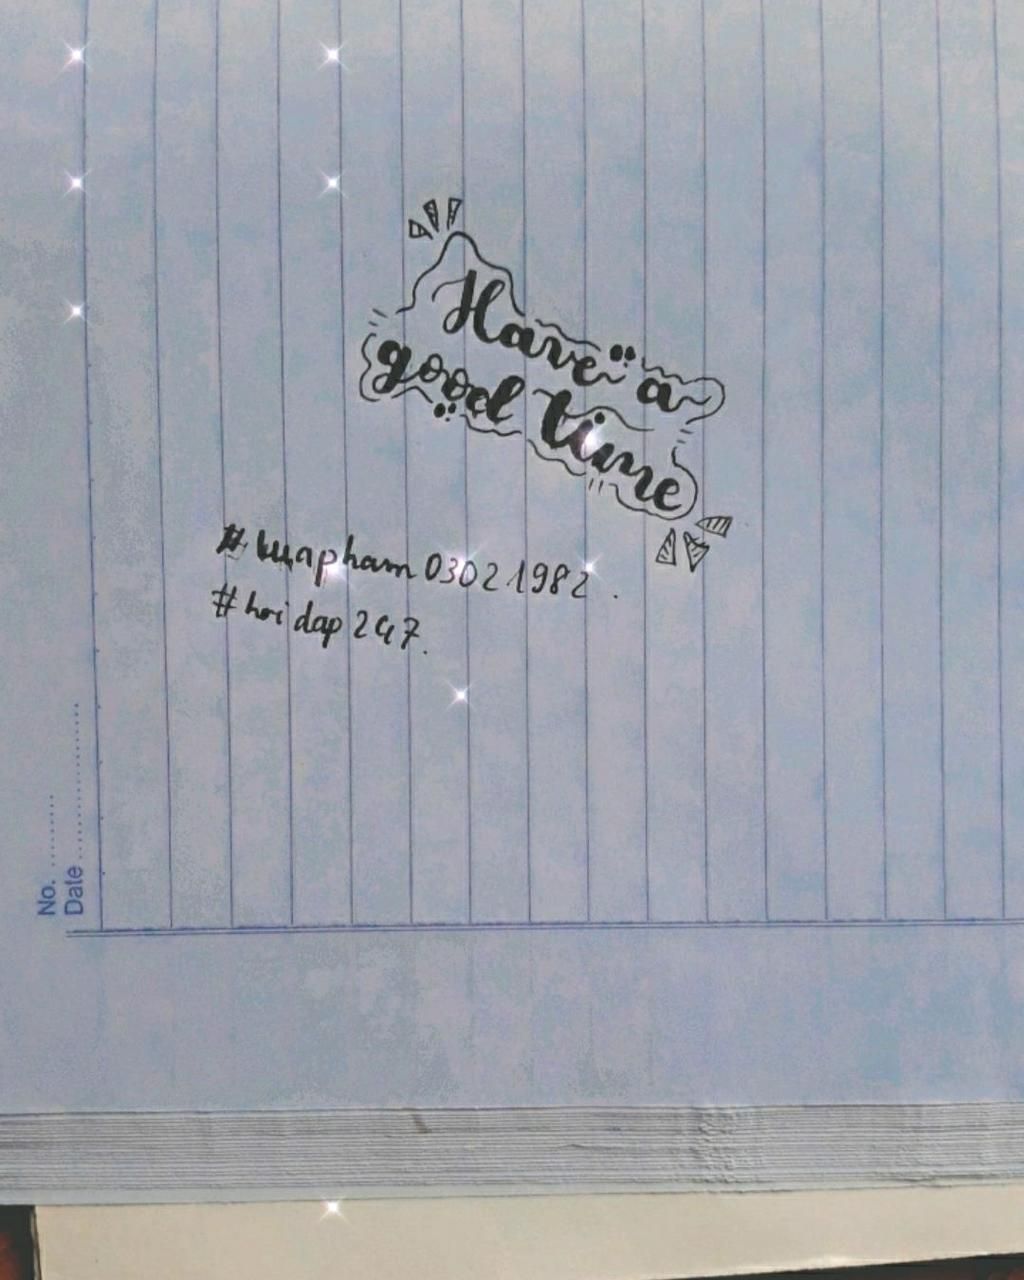 Have a
good time
#luapham03021982.
#hoidap247.
No. ........
Date ....................